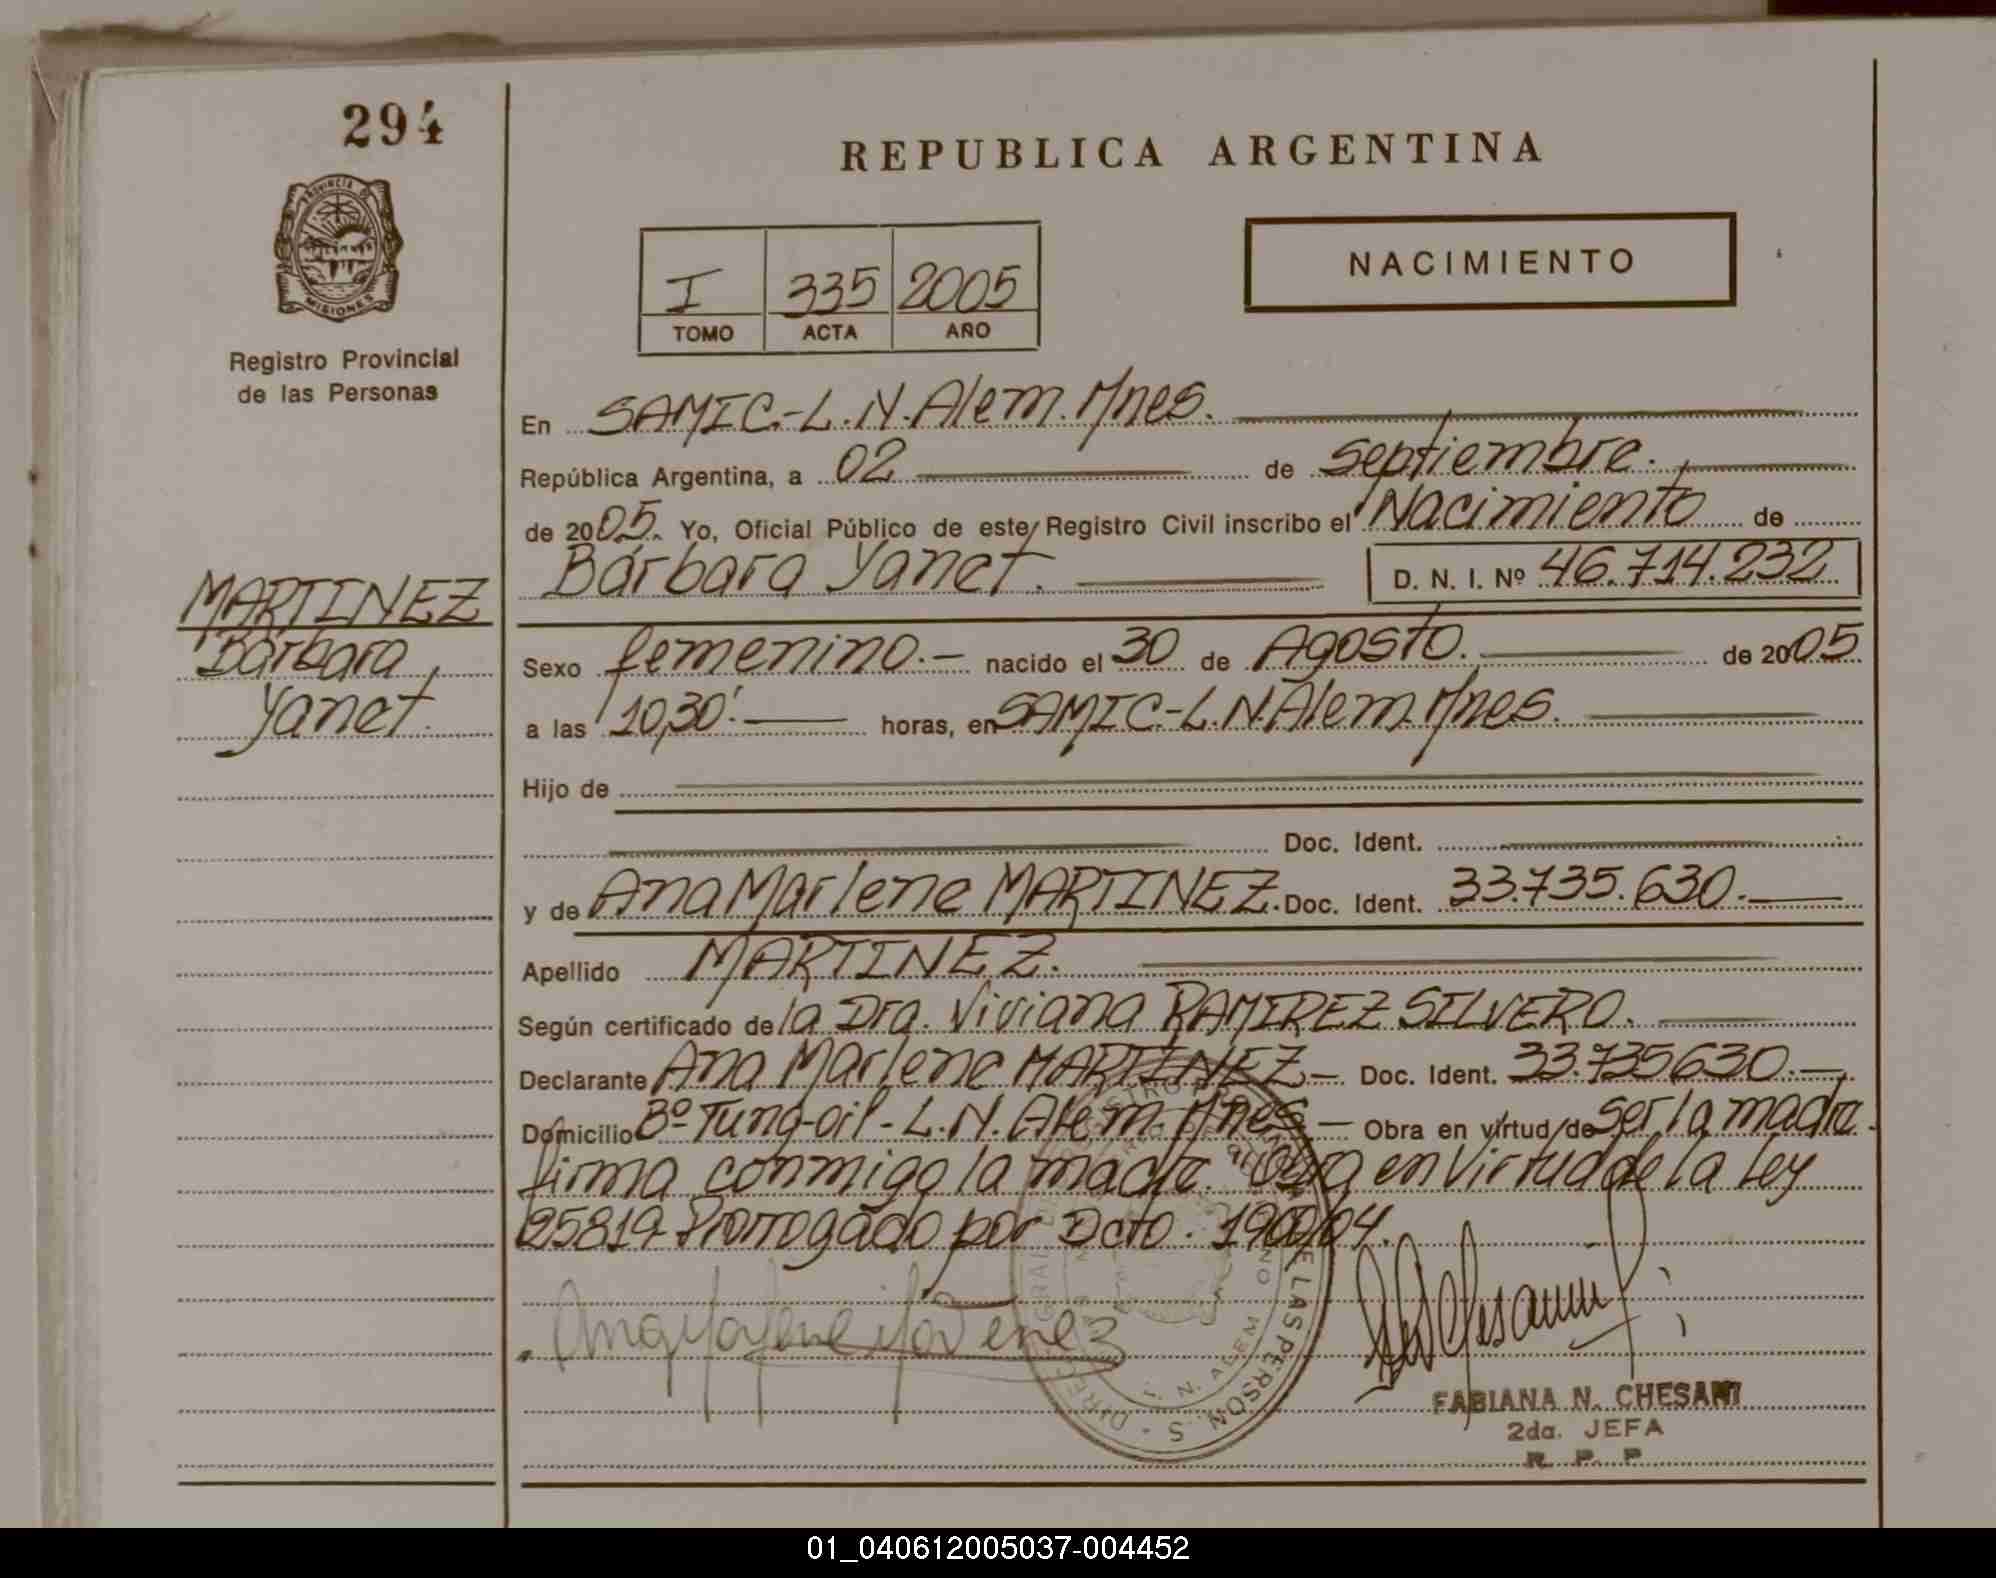 294
REPUBLICA ARGENTINA
PROVINCIA DE
MISIONES
Registro Provincial
de las Personas
I 335 2005
TOMO ACTA AÑO
NACIMIENTO
En SAMIC.-L.N.Alem.Mnes.
República Argentina, a 02 de septiembre.
de 2005. Yo, Oficial Público de este Registro Civil inscribo el Nacimiento de
Bárbara Yanet. D. N. I. Nº 46.714.232
MARTINEZ
Bárbara
Yanet.
Sexo femenino.- nacido el 30 de Agosto. de 2005
a las 10,30'. horas, en SAMIC.-L.N.Alem.Mnes.
Hijo de
Doc. Ident.
y de Ana Marlene MARTINEZ. Doc. Ident. 33.735.630.-
Apellido MARTINEZ.
Según certificado de la Dra. Viviana RAMIREZ SILVERO.
Declarante Ana Marlene MARTINEZ- Doc. Ident. 33.735630.-
Domicilio Bº Tung-oil-L.N.Alem.Mnes.- Obra en virtud de ser la madre.
firma conmigo la madre. Obra en Virtud de la Ley
25819 Prorrogado por Dcto. 1900/04.
FABIANA N. CHESANI
2da. JEFA
R. P. P.
01_040612005037-004452